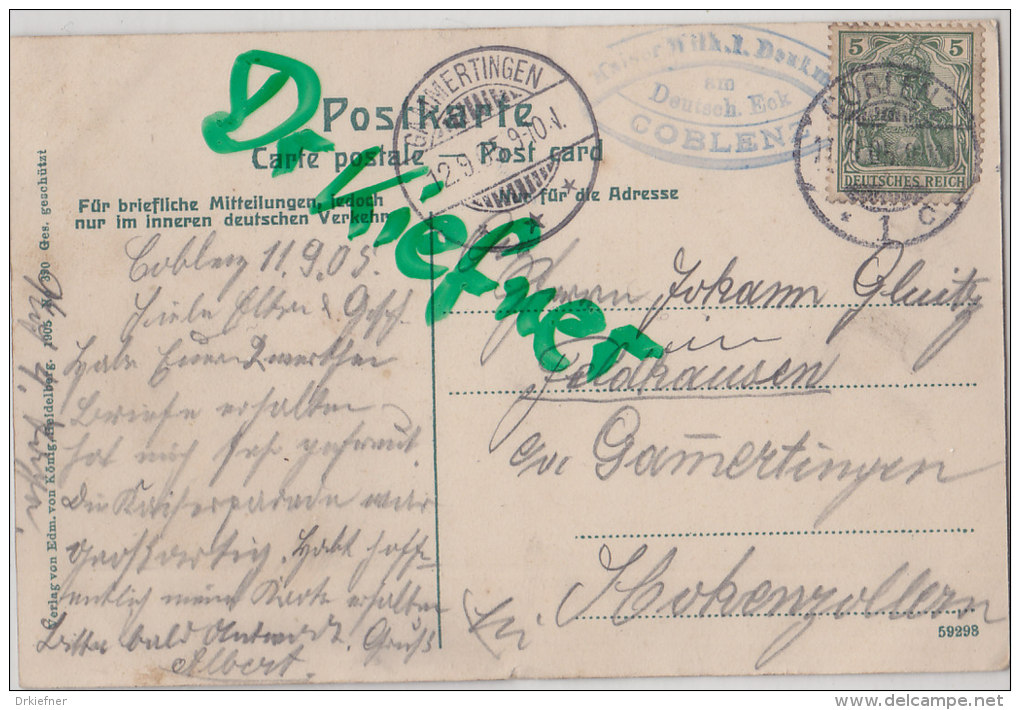 Postkarte
Carte postale — Post card
Für briefliche Mitteilungen, jedoch
nur im inneren deutschen Verkehr
Nur für die Adresse
Dr. Kiefner
GAMMERTINGEN
12.9.05. 9-10.V.
Kaiser Wilh. I. Denkm
am
Deutsch. Eck
COBLENZ
5 5
DEUTSCHES REICH
COBLENZ
* 1 c
Coblenz 11.9.05.
Liebe Eltern & Gesch.
Habe Euren werthen
Briefe erhalten
hat mich sehr gefreut.
Die Kaiserparade war
großartig. Habt hoff-
entlich meine Karte erhalten
Bitte bald Antwort. Gruß
Albert.
Herrn Johann
in
Feldhausen
Gam̅ertingen
Hohenzollern
59298
Verlag von Edm. von König, Heidelberg. 1905 No. 390 Ges. geschützt
Drkiefner
www.delcampe.net